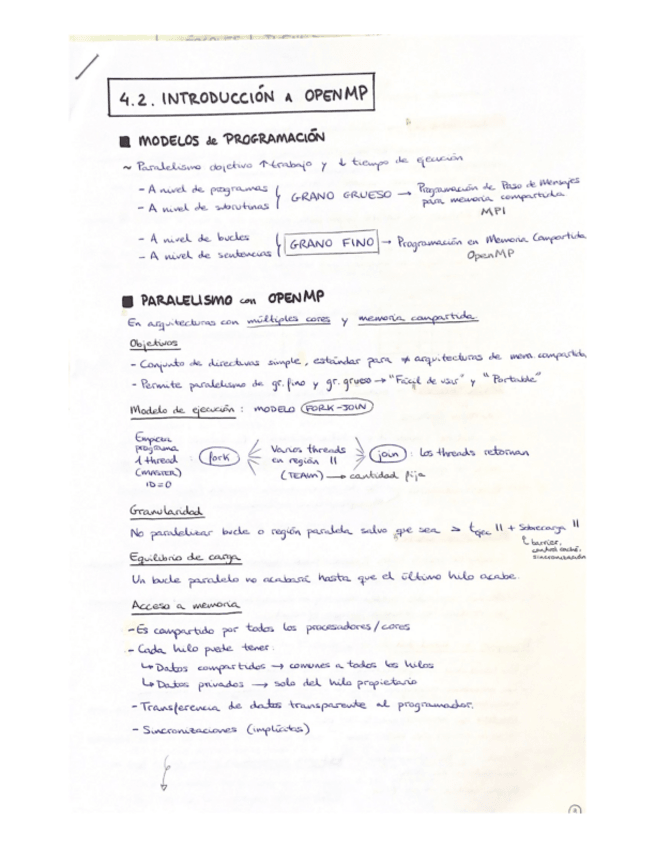 4.2. INTRODUCCIÓN A OPENMP
■ MODELOS de PROGRAMACIÓN
~ Paralelismo objetivo ↑ trabajo y ↓ tiempo de ejecución
- A nivel de programas
- A nivel de subrutinas
GRANO GRUESO → Programación de Paso de Mensajes
para memoria compartida
MPI
- A nivel de bucles
- A nivel de sentencias
GRANO FINO → Programación en Memoria Compartida
OpenMP
■ PARALELISMO con OPENMP
En arquitecturas con múltiples cores y memoria compartida.
Objetivos
- Conjunto de directivas simple, estándar para ≠ arquitecturas de mem. compartida
- Permite paralelismo de gr. fino y gr. grueso → "Fácil de usar" y "Portable"
Modelo de ejecución: MODELO FORK-JOIN
Empieza
programa
1 thread
(MASTER)
ID=0
: fork
Varios threads
en región ||
(TEAM) → cantidad fija
join : los threads retornan
Granularidad
No paralelizar bucle o región paralela salvo que sea > t ejec || + Sobrecarga ||
↳ barrier,
sincronización
Equilibrio de carga
Un bucle paralelo no acabará hasta que el último hilo acabe.
Acceso a memoria
- Es compartido por todos los procesadores/cores
- Cada hilo puede tener:
↳ Datos compartidos → comunes a todos los hilos
↳ Datos privados → solo del hilo propietario
- Transferencia de datos transparente al programador.
- Sincronizaciones (implícitas)